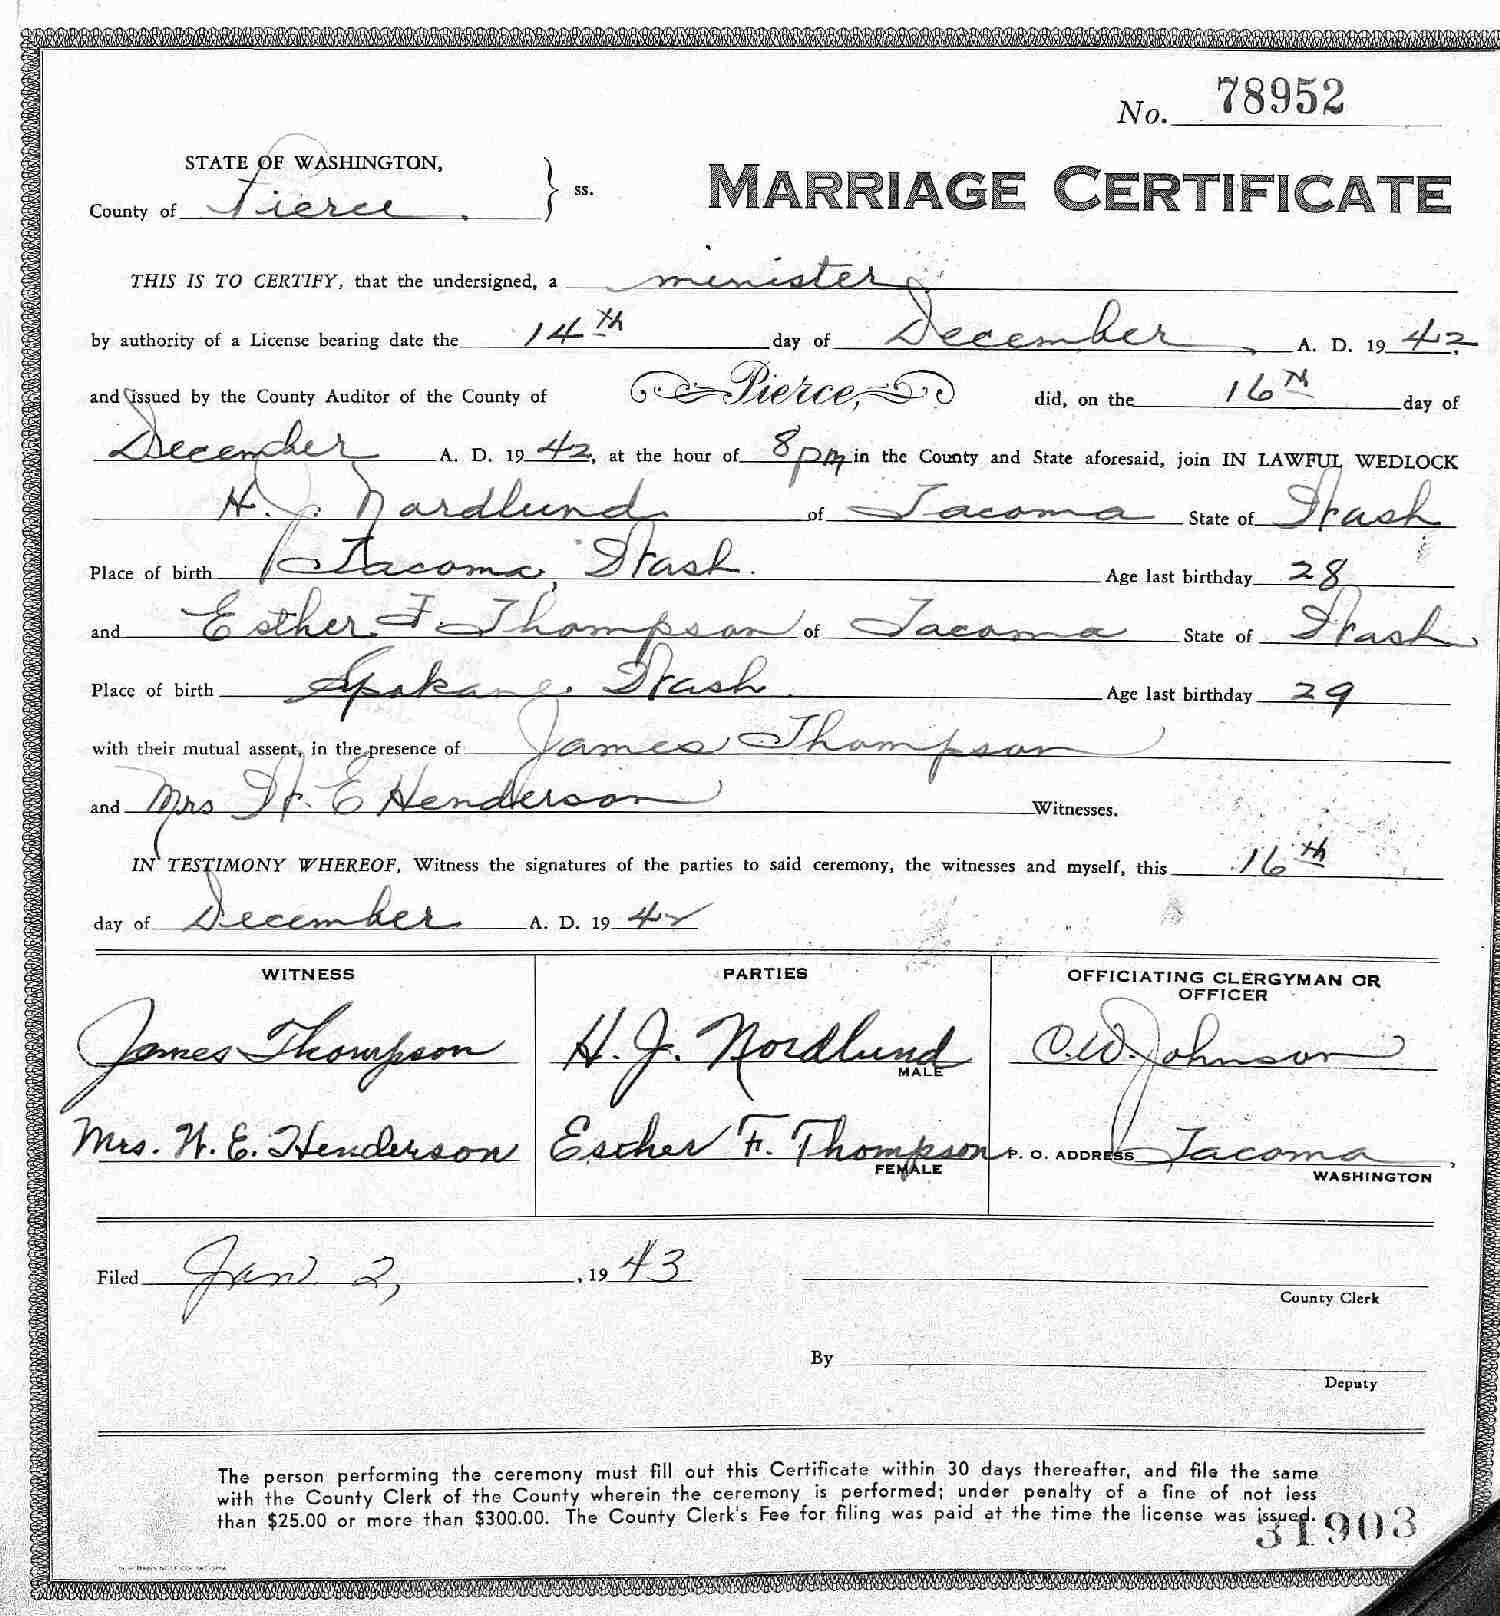 No. 78952
STATE OF WASHINGTON,
County of Pierce. } ss.
MARRIAGE CERTIFICATE
THIS IS TO CERTIFY, that the undersigned, a minister
by authority of a License bearing date the 14th day of December, A. D. 1942,
and issued by the County Auditor of the County of Pierce, did, on the 16th day of
December A. D. 1942, at the hour of 8 pm in the County and State aforesaid, join IN LAWFUL WEDLOCK
H. J. Nordlund of Tacoma State of Wash
Place of birth Tacoma, Wash. Age last birthday 28
and Esther F. Thompson of Tacoma State of Wash
Place of birth Spokane. Wash. Age last birthday 29
with their mutual assent, in the presence of James Thompson
and Mrs W. E Henderson Witnesses.
IN TESTIMONY WHEREOF, Witness the signatures of the parties to said ceremony, the witnesses and myself, this 16th
day of December A. D. 1942
WITNESS
James Thompson
Mrs. W. E. Henderson
PARTIES
H. J. Nordlund
MALE
Esther F. Thompson
FEMALE
OFFICIATING CLERGYMAN OR
OFFICER
C.W. Johnson
P. O. ADDRESS Tacoma,
WASHINGTON
Filed Jan 2, , 1943
County Clerk
By
Deputy
The person performing the ceremony must fill out this Certificate within 30 days thereafter, and file the same
with the County Clerk of the County wherein the ceremony is performed; under penalty of a fine of not less
than $25.00 or more than $300.00. The County Clerk's Fee for filing was paid at the time the license was issued.
31903